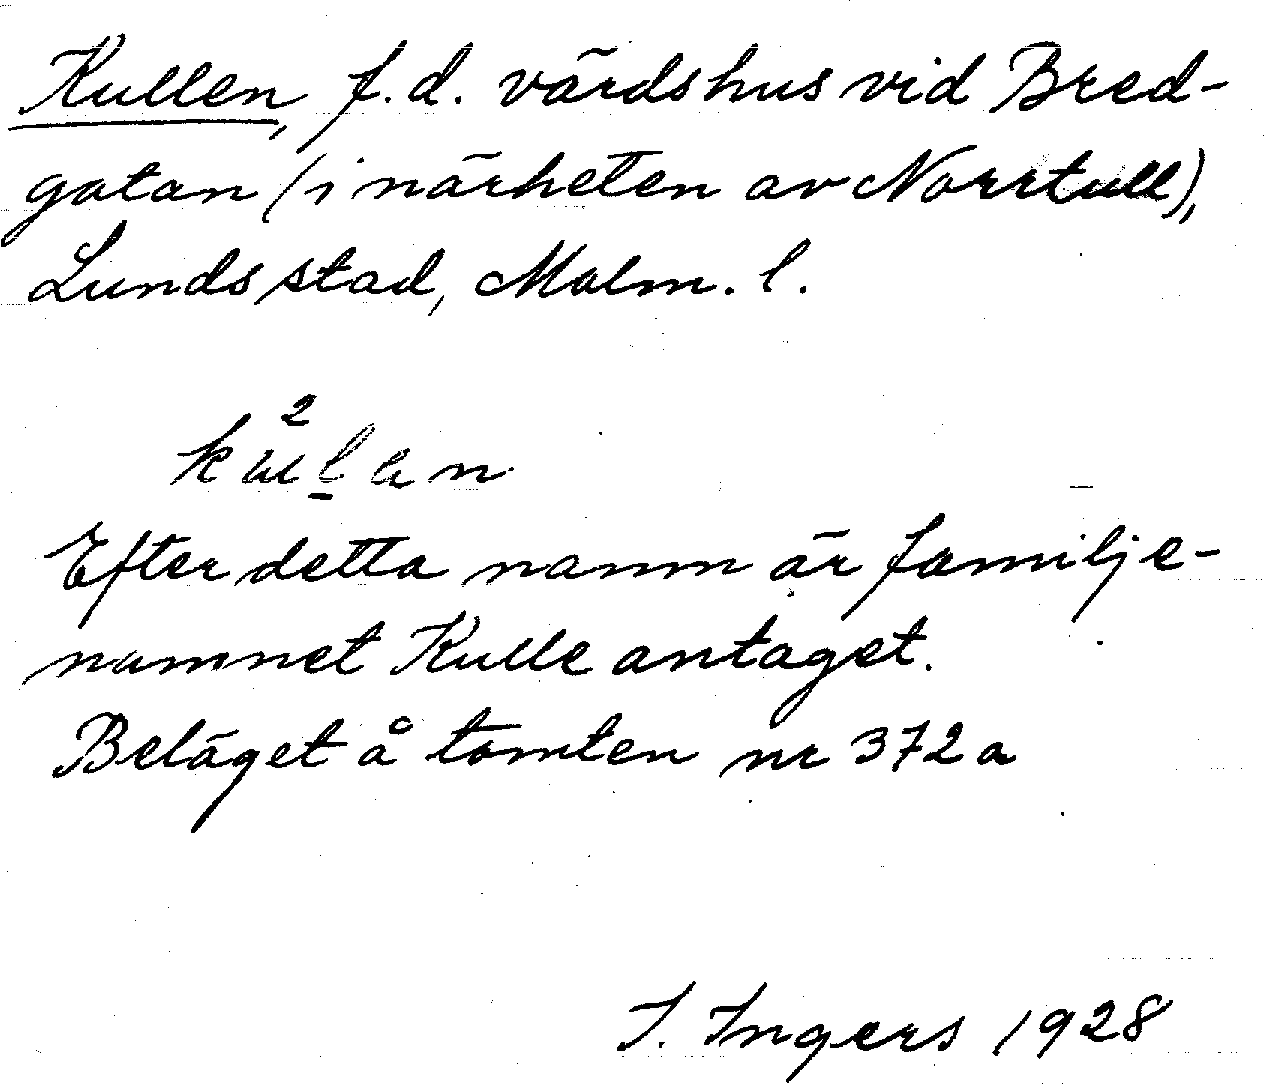 Kullen, f.d. värdshus vid Bred-
gatan (i närheten av Norrtull),
Lunds stad, Malm. l.
Efter detta namn är familje-
namnet Kulle antaget.
Beläget å tomten nr 372a
I. Ingers 1928